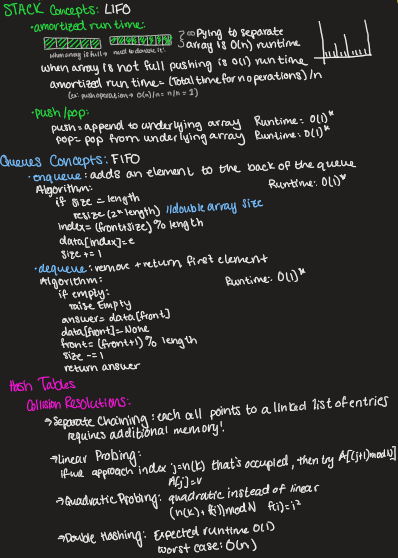 STACK Concepts: LIFO
• amortized run time:
copying to separate
array is O(n) runtime
when array is full → need to double it!
when array is not full pushing is O(1) run time
amortized run time = (total time for n operations)/n
(ex: push operation → O(n)/n = n/n = 1)
• push/pop:
push = append to underlying array Runtime: O(1)*
pop = pop from underlying array Runtime: O(1)*
Queues Concepts: FIFO
• enqueue: adds an element to the back of the queue
Algorithm: Runtime: O(1)*
if size = length
resize (2* length) //double array size
index = (front+size) % length
data[index] = e
size += 1
• dequeue: remove + return first element
Algorithm: Runtime: O(1)*
if empty:
raise Empty
answer = data[front]
data[front] = None
front = (front+1) % length
size -= 1
return answer
Hash Tables
Collision Resolutions:
→ Separate Chaining: each cell points to a linked list of entries
requires additional memory!
→ Linear Probing:
If we approach index j=h(k) that's occupied, then try A[(j+1)modN]
A[j]=v
→ Quadratic Probing: quadratic instead of linear
(h(k)+f(i))modN f(i)=i²
→ Double Hashing: Expected runtime O(1)
worst case: O(n)